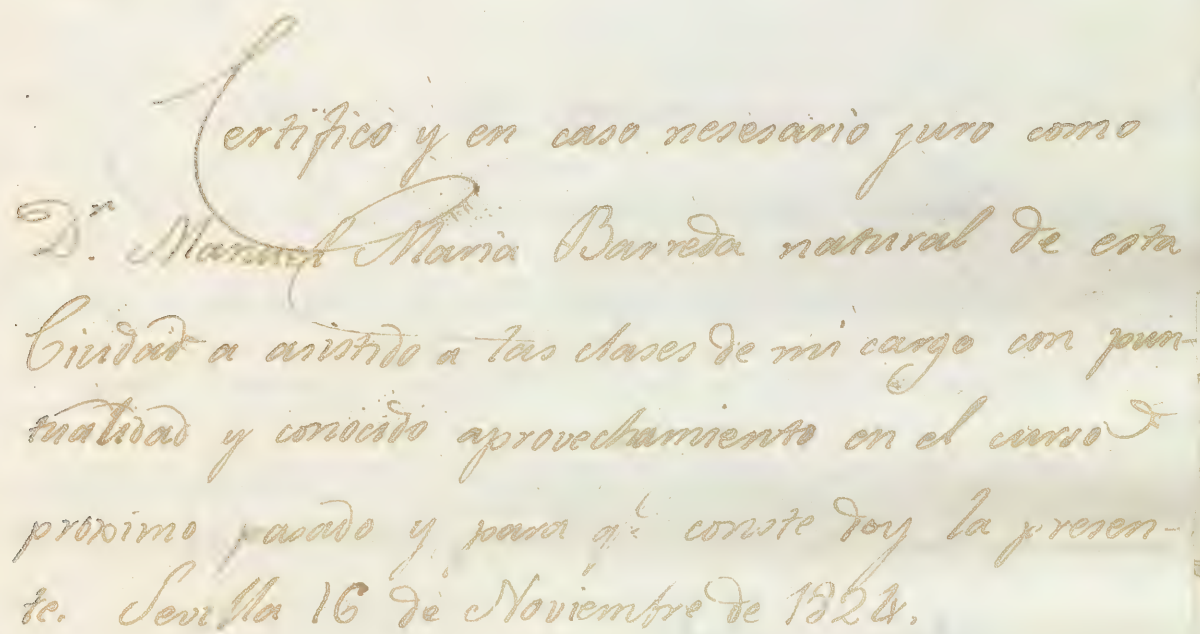 Certifico y en caso nesesario juro como
D.n Manuel Maria Barreda natural de esta
Ciudad a asistido a las clases de mi cargo con pun-
tualidad y conocido aprovechamiento en el curso
proximo pasado y para q.e conste doy la presen-
te. Sevilla 16 de Noviembre de 1824.